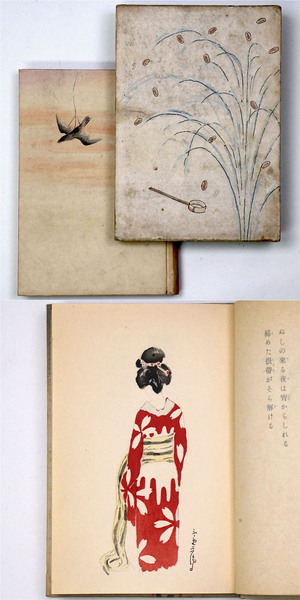 ぬしの來る夜は宵からしれる
締めた扱帯がそら解ける